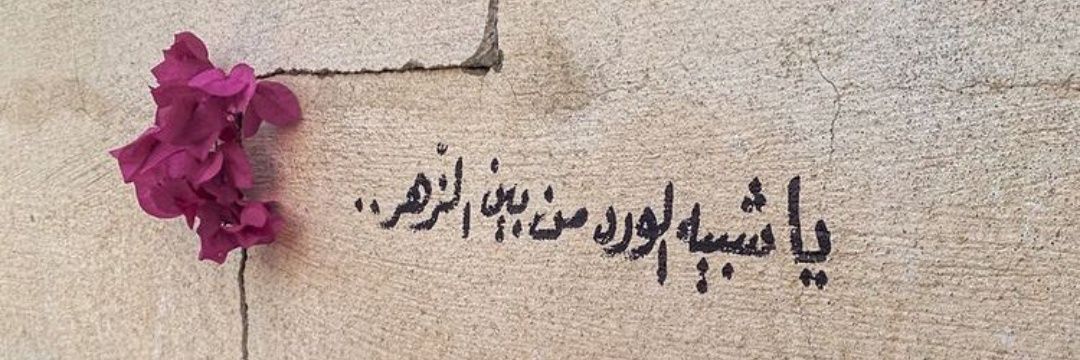 يا شبيه الورد من بين الزّهر..